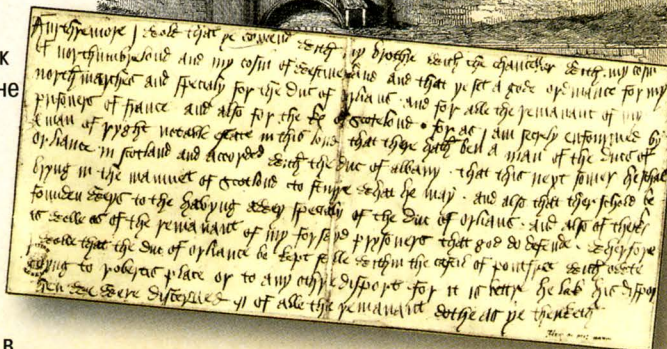 к
не
Furthermore I wold that ye comend with my brothre with the chanceller with my cosin
of northumbrelond and my cosin of westmerland and that ye set a gode ordinance for my
north marches and specialy for the duc of orlians and for alle the remanant of my
prisoners of france and also for the K of scotelond for as I am secrely enfourmed by
a man of ryght notable estate in this lond that there hath ben a man of the ducs of
orliance in scotland and accorded with the duc of albany that this next somer he schal
bryng in the mamuet of scotlond to stirre what he may and also that ther schold be
founden weys to the havyng awey specialy of the duc of orlians and also of the K
as welle as of the remanant of my forsayd prysoners that god do defende wherfore
I wolle that the duc of orliance be kept stille withyn the castil of pontfret with owte
goyng to robertis place or to any othre disport for it is bettre he lak his disport
then we were disceyved of alle the remanant dothe as ye thenketh
в